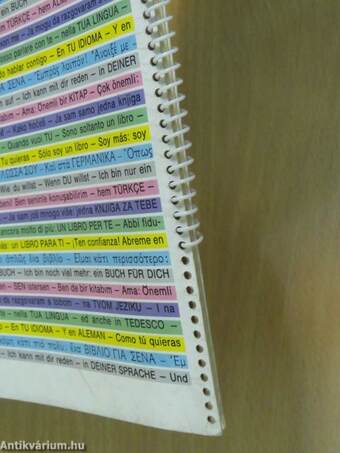 ein BUCH
TÜRKÇE – hem ALM
kan mi – Ja mogu da razgovaram
nella TUA LINGUA –
sso parlare con te –
do hablar contigo – En TU IDIOMA – Y en
ΣΕΝΑ – Ἐμπρός λοιπόν! Ἄνοιξέ με –
n auf – Ich kann mit dir reden – in DEINER
kitabım – Ama: Önemli bir KİTAP – Çok önemli:
M – Kako hoćeš – Ja sam samo jedna knjiga
– Quando vuoi TU – Sono soltanto un libro –
Tu quieras – Sólo soy un libro – Soy más: soy
ΛΩΣΣΑ ΣΟΥ – Καί στά ΓΕΡΜΑΝΙΚΑ – Ὅπως
Wie du willst – Wenn DU willst – Ich bin nur ein
beni! Ben seninle konuşabilirim – hem TÜRKÇE –
– Ja sam još mnogo više: jedna KNJIGA ZA TEBE
ancora molto di più: UN LIBRO PER TE – Abbi fidu-
más: un LIBRO PARA TI – ¡Ten confianza! Abreme en
ἁπλῶς ἕνα βιβλίο – Εἶμαι κάτι περισσότερο:
BUCH – Ich bin noch viel mehr: ein BUCH FÜR DICH
– SEN istersen – Ben de bir kitabım – Ama: Önemli
da razgovaram s tobom – na TVOM JEZIKU – I na
nella TUA LINGUA – ed anche in TEDESCO –
– En TU IDIOMA – Y en ALEMAN – Como tú quieras
κάτι πιό πολύ, ἕνα ΒΙΒΛΙΟ ΓΙΑ ΣΕΝΑ – Ἐμ
– Ich kann mit dir reden – in DEINER SPRACHE – Und
Antikvárium.hu